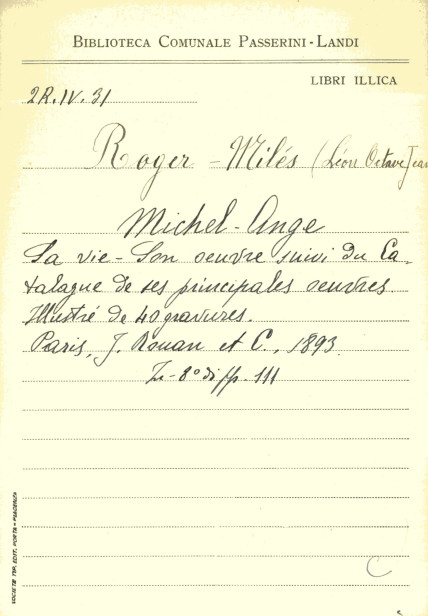 BIBLIOTECA COMUNALE PASSERINI-LANDI
LIBRI ILLICA
2R.IV.31
Roger - Milés (Léon Octave Jean
Michel-Ange
La vie - Son oeuvre suivi du Ca-
talague de ses principales oeuvres.
Illustré de 40 gravures.
Paris, J. Rouan et C., 1893.
In-8° di pp. 111
SOCIETÀ TIP. EDIT. PORTA - PIACENZA
C